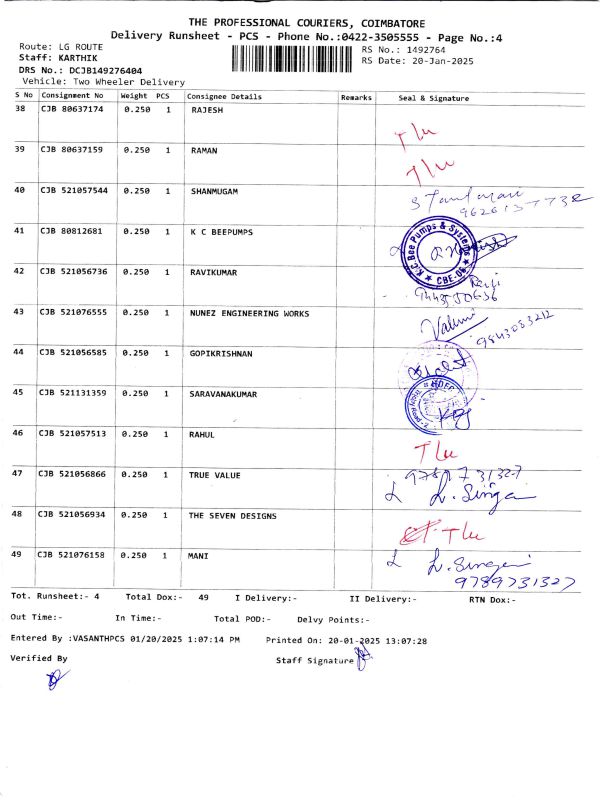 THE PROFESSIONAL COURIERS, COIMBATORE
Delivery Runsheet - PCS - Phone No.:0422-3505555 - Page No.:4
Route: LG ROUTE
RS No.: 1492764
Staff: KARTHIK
RS Date: 20-Jan-2025
DRS No.: DCJB149276404
Vehicle: Two Wheeler Delivery
S No Consignment No Weight PCS Consignee Details Remarks Seal & Signature
38 CJB 80637174 0.250 1 RAJESH
TLu
39 CJB 80637159 0.250 1 RAMAN
TLu
40 CJB 521057544 0.250 1 SHANMUGAM
41 CJB 80812681 0.250 1 K C BEEPUMPS
K.C. Bee Pumps & Systems
CBE-06
42 CJB 521056736 0.250 1 RAVIKUMAR
43 CJB 521076555 0.250 1 NUNEZ ENGINEERING WORKS
9843083212
44 CJB 521056585 0.250 1 GOPIKRISHNAN
45 CJB 521131359 0.250 1 SARAVANAKUMAR
46 CJB 521057513 0.250 1 RAHUL
TLu
47 CJB 521056866 0.250 1 TRUE VALUE
48 CJB 521056934 0.250 1 THE SEVEN DESIGNS
TLu
49 CJB 521076158 0.250 1 MANI
9789731327
Tot. Runsheet:- 4 Total Dox:- 49 I Delivery:- II Delivery:- RTN Dox:-
Out Time:- In Time:- Total POD:- Delvy Points:-
Entered By :VASANTHPCS 01/20/2025 1:07:14 PM Printed On: 20-01-2025 13:07:28
Verified By Staff Signature